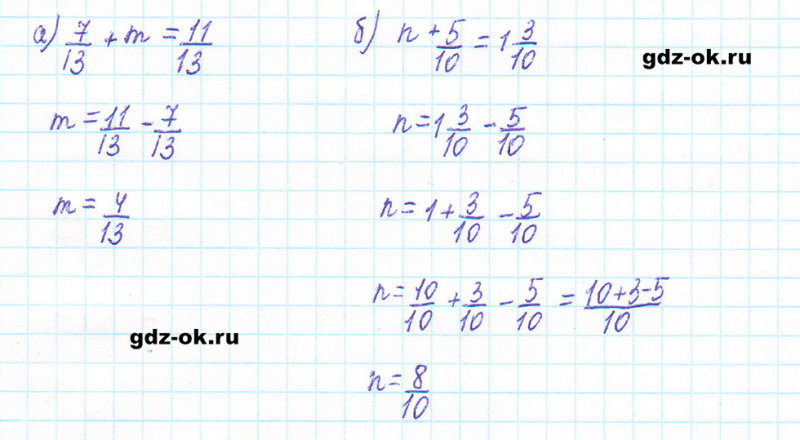 а) 7/13 + m = 11/13
m = 11/13 - 7/13
m = 4/13
gdz-ok.ru
б) n + 5/10 = 1 3/10
gdz-ok.ru
n = 1 3/10 - 5/10
n = 1 + 3/10 - 5/10
n = 10/10 + 3/10 - 5/10 = (10+3-5)/10
n = 8/10